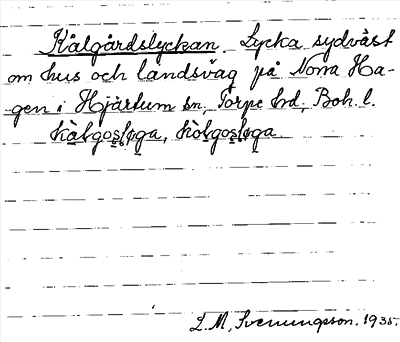 Kålgårdslyckan. Lycka sydväst
om hus och landsväg på Norra Ha-
gen i Hjärtum sn, Torpe hd, Boh. l.
L. M. Svenungsson. 1935.